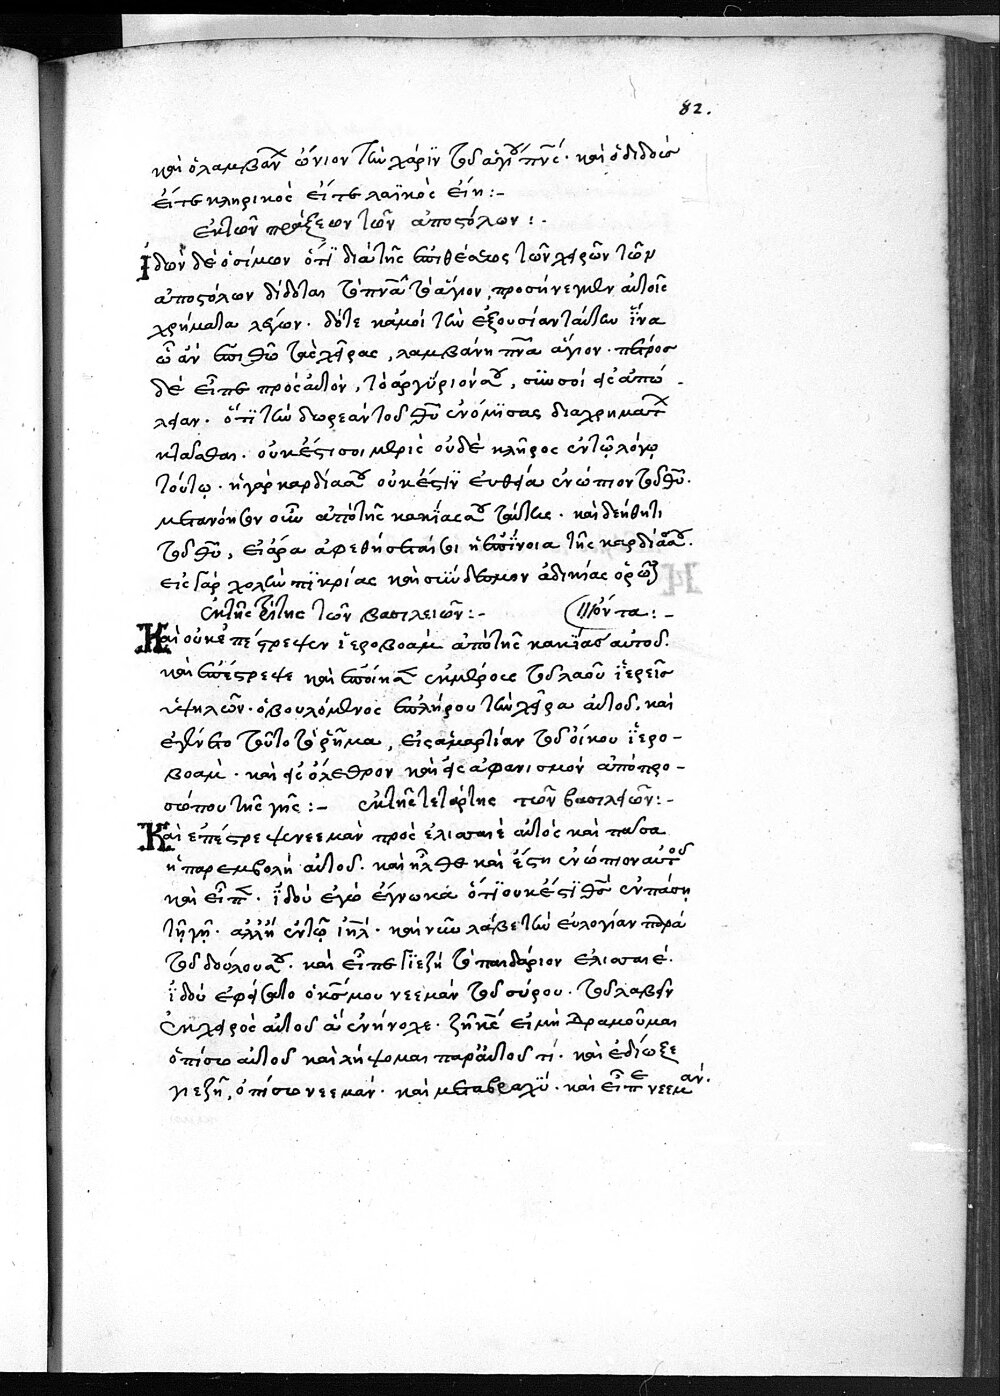 82.
καὶ ὁ λαμβάν ὤνιον τὴν χάριν τοῦ ἁγίου πνς. καὶ ὁ διδοὺς
εἴτε κληρικὸς εἴτε λαϊκὸς εἴη :-
ἐκ τῶν πράξεων τῶν ἀποστόλων :-
Ἰδὼν δὲ ὁ σίμων ὅτι διὰ τῆς ἐπιθέσεως τῶν χειρῶν τῶν
ἀποστόλων δίδοται τὸ πνᾶ τὸ ἅγιον, προσήνεγκεν αὐτοῖς
χρήματα λέγων. δότε κἀμοὶ τὴν ἐξουσίαν ταύτην ἵνα
ᾧ ἂν ἐπιθῶ τὰς χεῖρας, λαμβάνη πνᾶ ἅγιον. πέτρος
δὲ εἶπε πρὸς αὐτὸν, τὸ ἀργύριόν σου, σὺν σοὶ εἰς ἀπώ-
λειαν. ὅτι τὴν δωρεὰν τοῦ θῦ ἐνόμισας διὰ χρημάτ
κτᾶσθαι. οὐκ ἔστι σοι μερὶς οὐδὲ κλῆρος ἐν τῷ λόγῳ
τούτῳ. ἡ γὰρ καρδία σου οὐκ ἔστιν εὐθεῖα ἐνώπιον τοῦ θῦ.
μετανόησον οὖν ἀπὸ τῆς κακίας σου ταύτης. καὶ δεήθητι
τοῦ θῦ, εἰ ἄρα ἀφεθήσεταί σοι ἡ ἐπίνοια τῆς καρδίας σου.
εἰς γὰρ χολὴν πικρίας καὶ σύνδεσμον ἀδικίας ὁρῶ σε
ἐκ τῆς τρίτης τῶν βασιλειῶν :- (ὄντα :-
Καὶ οὐκ ἐπέστρεψεν ἱεροβοὰμ ἀπὸ τῆς κακίας αὐτοῦ.
καὶ ἐπέστρεψε καὶ ἐποίησ ἐκ μέρους τοῦ λαοῦ ἱερεῖς
ὑψηλῶν. ὁ βουλόμενος ἐπλήρου τὴν χεῖρα αὐτοῦ. καὶ
ἐγένετο τοῦτο τὸ ῥῆμα, εἰς ἁμαρτίαν τοῦ οἴκου ἱερο-
βοὰμ. καὶ εἰς ὄλεθρον καὶ εἰς ἀφανισμὸν ἀπὸ προ-
σώπου τῆς γῆς :- ἐκ τῆς τετάρτης τῶν βασιλειῶν :-
Καὶ ἐπέστρεψε νεεμὰν πρὸς ἐλισσαιὲ αὐτὸς καὶ πᾶσα
ἡ παρεμβολὴ αὐτοῦ. καὶ ἦλθε καὶ ἔστη ἐνώπιον αὐτοῦ
καὶ εἶπ. ἰδοὺ ἐγὼ ἔγνωκα ὅτι οὐκ ἔστι θς ἐν πάση
τῆ γῆ. ἀλλ' ἢ ἐν τῷ ἰηλ. καὶ νῦν λάβε τὴν εὐλογίαν παρὰ
τοῦ δούλου σου. καὶ εἶπε γιεζὴ τὸ παιδάριον ἐλισσαιέ.
ἰδοὺ ἐφείσατο ὁ κς μου νεεμὰν τοῦ σύρου. τοῦ λαβεῖν
ἐκ χειρὸς αὐτοῦ ἃ ἐνήνοχε. ζῆ κς εἰ μὴ δραμοῦμαι
ὀπίσω αὐτοῦ καὶ λήψομαι παρ' αὐτοῦ τί. καὶ ἐδίωξε
γιεζῆ, ὀπίσω νεεμάν. καὶ μεταβραχύ. καὶ εἶπε νεεμάν.